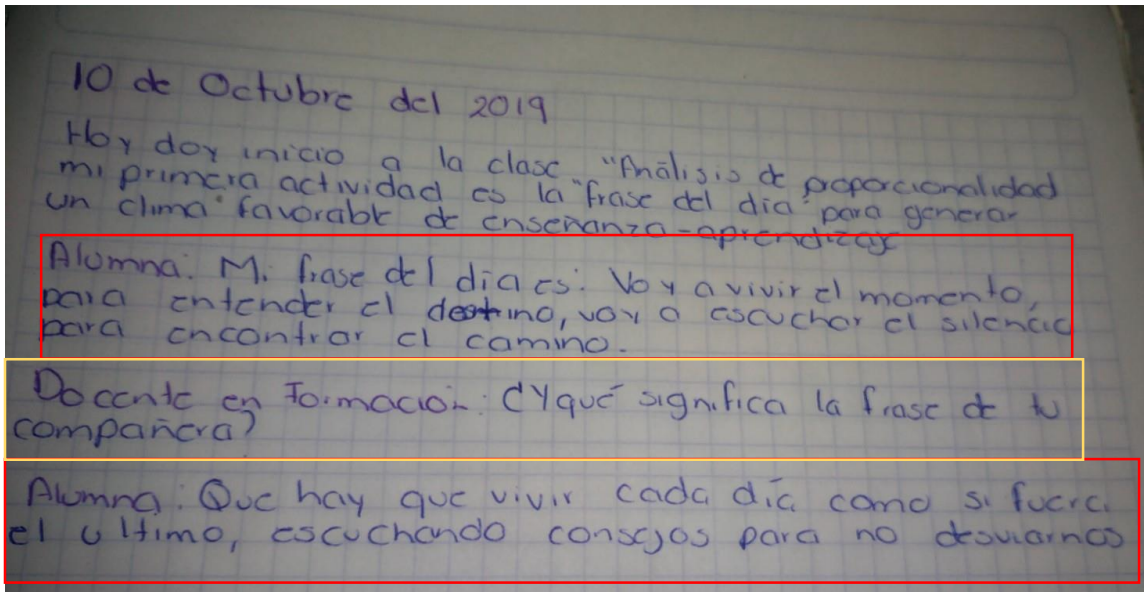 10 de Octubre del 2019
Hoy doy inicio a la clase "Análisis de proporcionalidad
mi primera actividad es la "frase del dia" para generar
un clima favorable de enseñanza-aprendizaje
Alumna: Mi frase del dia es: Voy a vivir el momento,
para entender el destino, voy a escuchar el silencio
para encontrar el camino.
Docente en Formación: ¿Y qué significa la frase de tu
compañera?
Alumna: Que hay que vivir cada día como si fuera
el ultimo, escuchando consejos para no desviarnos